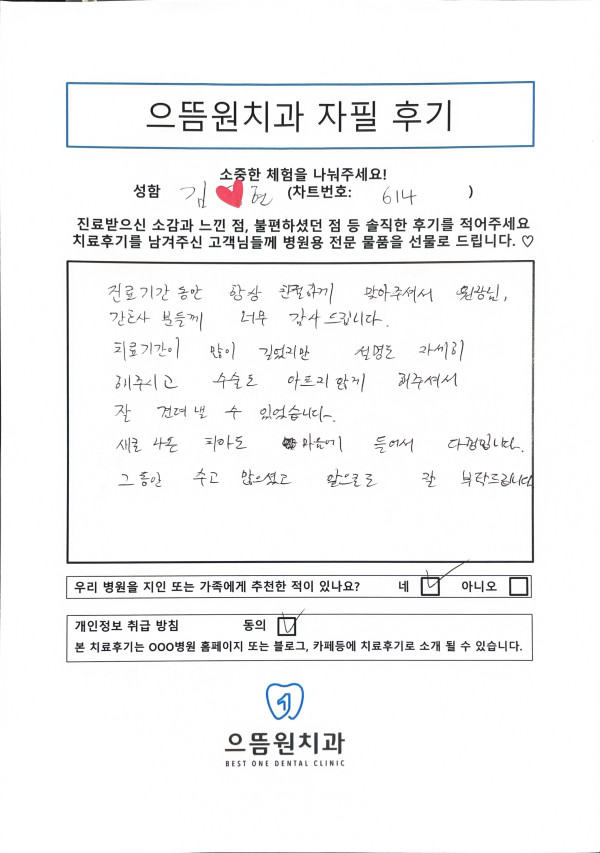 으뜸원치과 자필 후기
소중한 체험을 나눠주세요!
성함 김 현 (차트번호: 614 )
진료받으신 소감과 느낀 점, 불편하셨던 점 등 솔직한 후기를 적어주세요
치료후기를 남겨주신 고객님들께 병원용 전문 물품을 선물로 드립니다. ♡
진료기간 동안 항상 친절하게 맞아주셔서 원장님,
간호사 분들께 너무 감사 드립니다.
치료기간이 많이 길었지만 설명도 자세히
해주시고 수술도 아프지 않게 해주셔서
잘 견뎌 낼 수 있었습니다.
새로 나온 치아도 마음에 들어서 다행입니다.
그 동안 수고 많으셨고 앞으로도 잘 부탁드립니다
우리 병원을 지인 또는 가족에게 추천한 적이 있나요? 네 아니오
개인정보 취급 방침 동의
본 치료후기는 OOO병원 홈페이지 또는 블로그, 카페등에 치료후기로 소개 될 수 있습니다.
으뜸원치과
BEST ONE DENTAL CLINIC